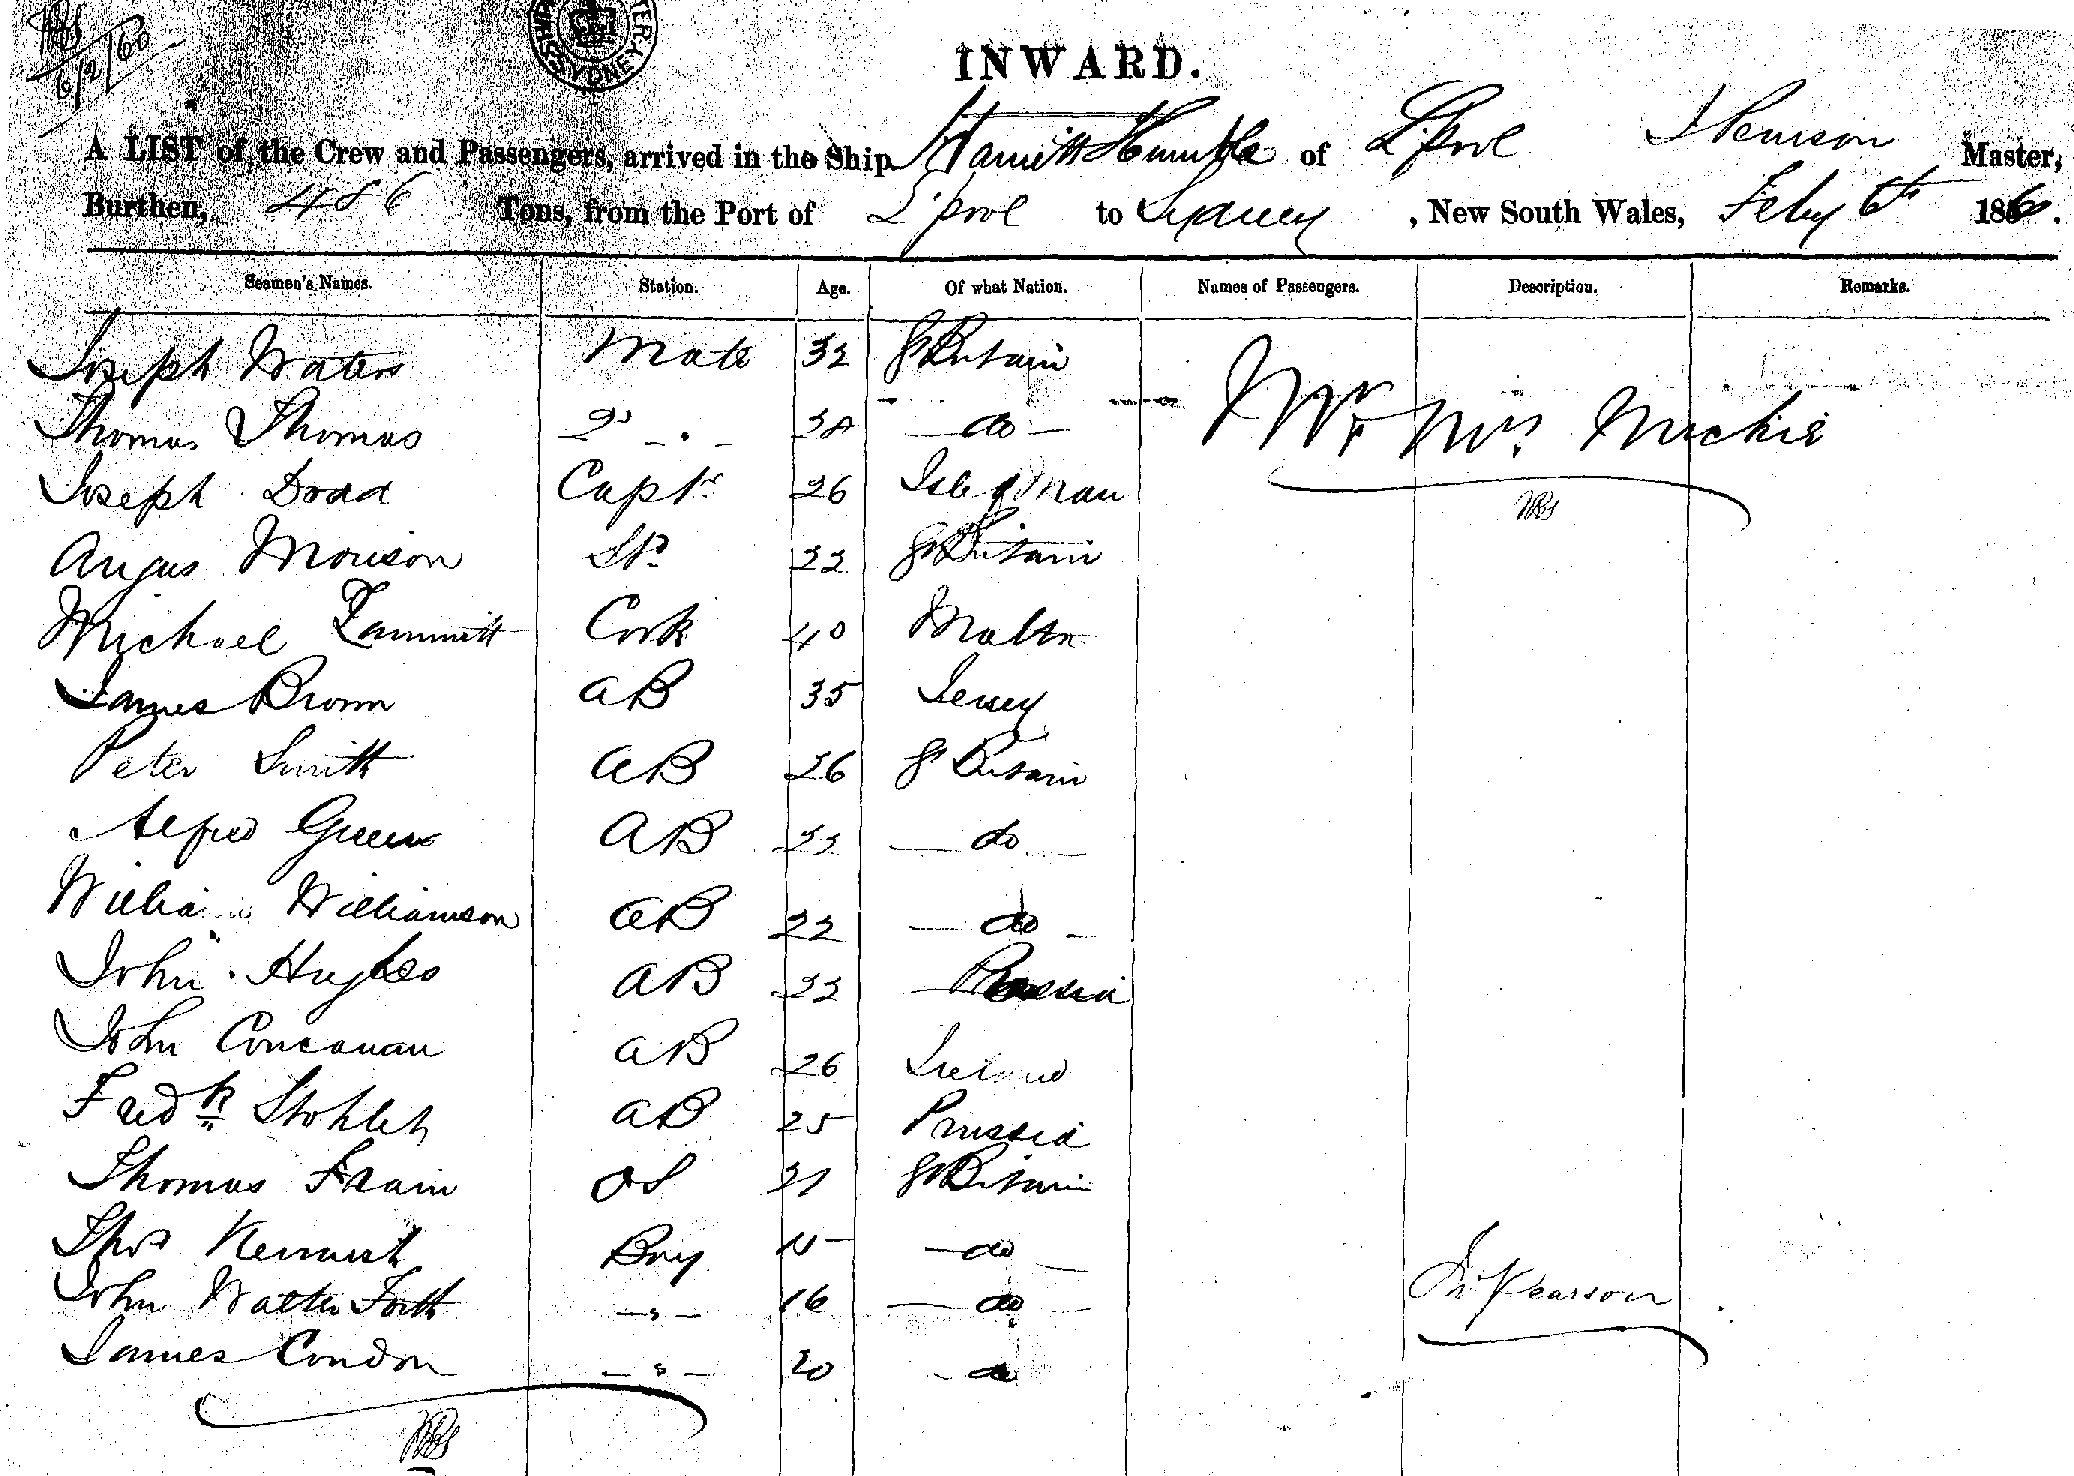 6/2/60
SYDNEY
INWARD.
A LIST of the Crew and Passengers, arrived in the Ship Harriett Humble of L'pool J Pearson Master,
Burthen, 486 Tons, from the Port of L'pool to Sydney, New South Wales, Feby 6th 1860.
Seamen's Names. Station. Age. Of what Nation. Names of Passengers. Description. Remarks.
Joseph Waters Mate 32 Gt Britain
Thomas Thomas 2d " do Mr Mrs Michie
Joseph Dodd Captr 26 Isle of Man
Angus Morrison St 22 Gt Britain
Michael Zammitt Cook 40 Malta
James Brown AB 35 Jersey
Peter Smith AB 26 Gt Britain
Alfred Green AB 22 do
William Williamson AB 22 do
John Hughes AB 22 Prussia
John Concanan AB 26 Ireland
Fredk Stohleh AB 25 Prussia
Thomas Frain OS 21 Gt Britain
Thos Kennish Boy 15 do
John Walter Forth " 16 do Jn Pearson
James Condon " 20 do